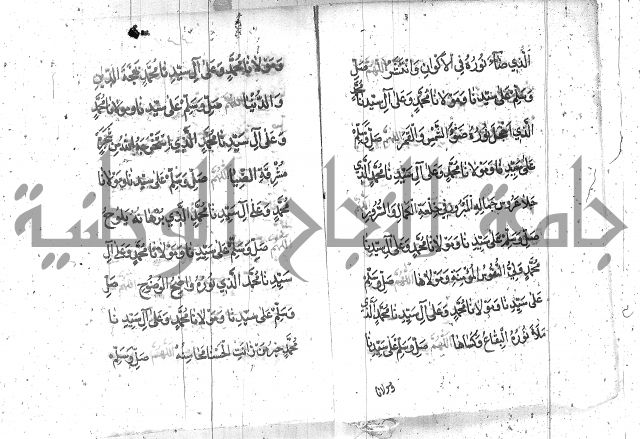 الذي ضاء نوره في الأكوان وانتشر اللهم صل
وسلم على سيدنا ومولانا محمد وعلى آل سيدنا محمد
الذي اخجل نوره ضوء الشمس والقمر اللهم صل وسلم
على سيدنا ومولانا محمد وعلى آل سيدنا محمد الذي
جماله في خلعة الكمال والسرور
صل وسلم على سيدنا ومولانا محمد وعلى آل سيدنا
محمد ولي النفوس المؤمنة ومولاها اللهم صل وسلم
على سيدنا ومولانا محمد وعلى آل سيدنا محمد الذي
ملأ نوره البقاع وكساها اللهم صل وسلم على سيدنا
ومولانا
ومولانا محمد وعلى آل سيدنا محمد بهجة الدين
والدنيا اللهم صل وسلم على سيدنا ومولانا محمد
وعلى آل سيدنا محمد الذي
مشرقة الضياء اللهم صل وسلم على سيدنا ومولانا
محمد وعلى آل سيدنا محمد الذي برهانه يلوح
اللهم صل وسلم على سيدنا ومولانا محمد وعلى آل
سيدنا محمد الذي نوره واضح الوضوح اللهم صل
وسلم على سيدنا ومولانا محمد وعلى آل سيدنا
محمد خير من محاسنه اللهم صل وسلم
جامعة النجاح الوطنية